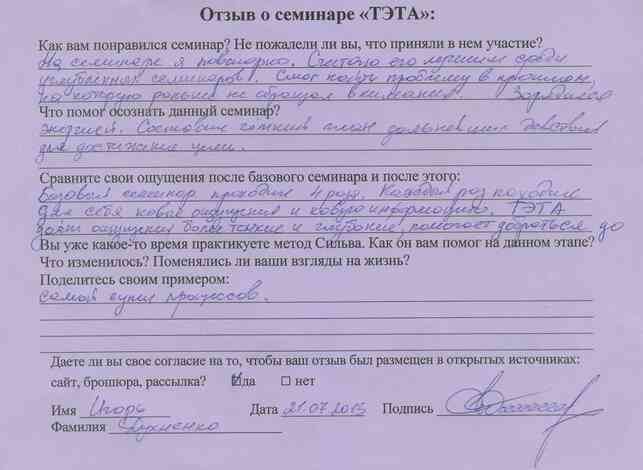 Отзыв о семинаре «ТЭТА»:
Как вам понравился семинар? Не пожалели ли вы, что приняли в нем участие?
На семинаре я повторно. Считаю его лучшим среди
углубленных семинаров! Смог найти проблему в прошлом,
на которую раньше не обращал внимания. Зарядился
Что помог осознать данный семинар?
энергией. Составил план дальнейших действий
для достижения цели.
Сравните свои ощущения после базового семинара и после этого:
Базовый семинар проходил 4 раза. Каждый раз находил
для себя новые ощущения и новую информацию. ТЭТА
дает ощущения более тонкие и глубокие, помогает добраться до
Вы уже какое-то время практикуете метод Сильва. Как он вам помог на данном этапе?
Что изменилось? Поменялись ли ваши взгляды на жизнь?
Поделитесь своим примером:
самой сути процессов.
Даете ли вы свое согласие на то, чтобы ваш отзыв был размещен в открытых источниках:
сайт, брошюра, рассылка? ☑да ☐ нет
Имя Игорь Дата 21.07.2015 Подпись
Фамилия